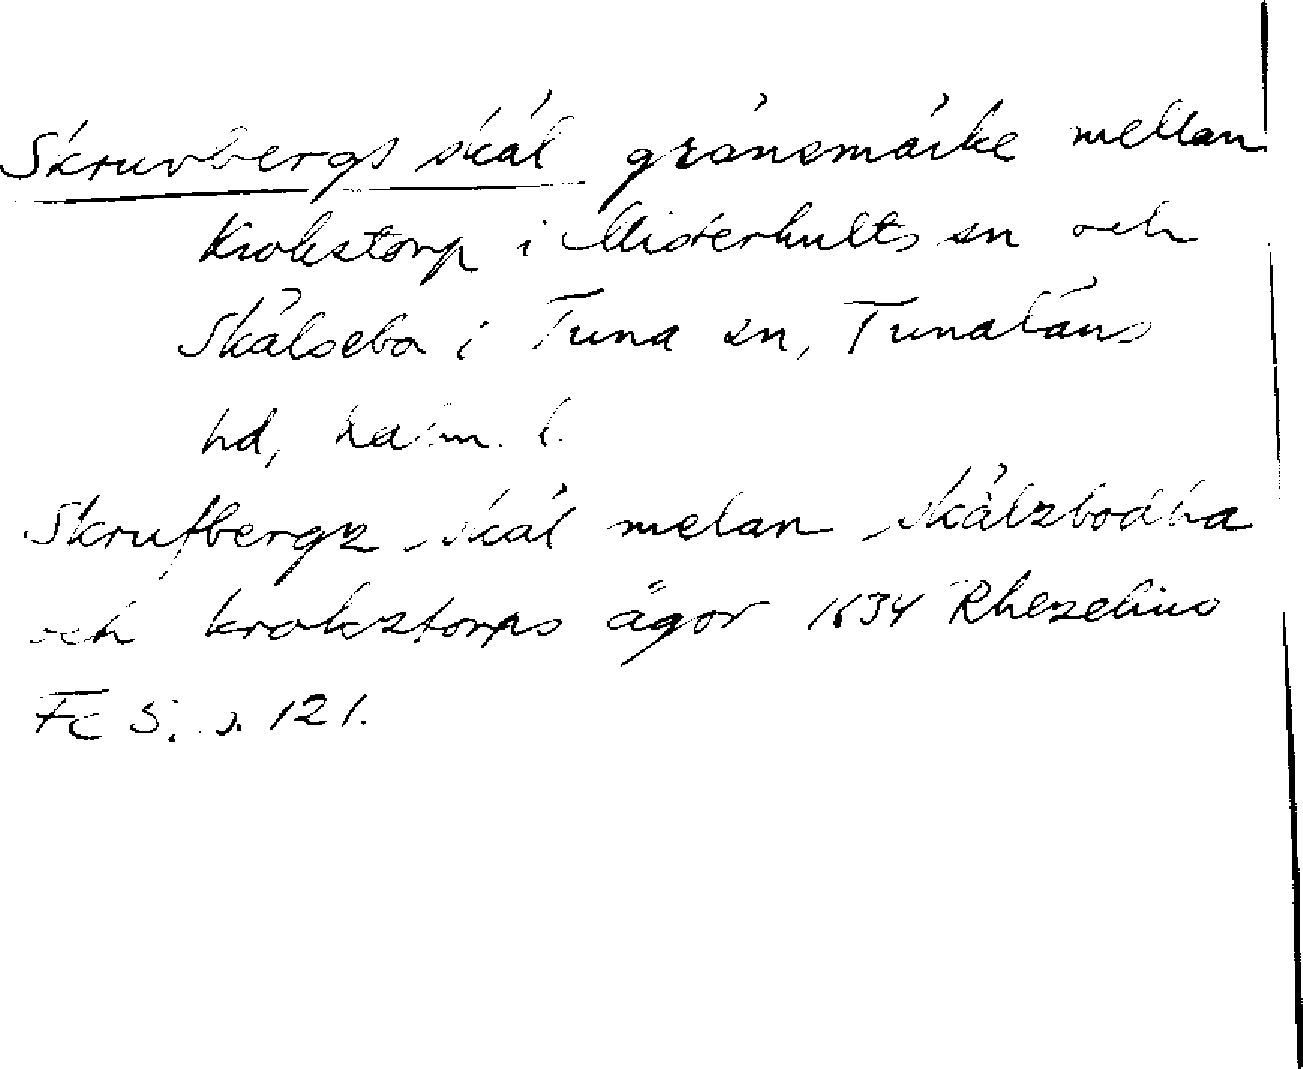 Skruvbergs skäl gränsmärke mellan
Krokstorp i Misterhults sn och
Skälsebo i Tuna sn, Tunaläns
hd, Kalm. l.
Skrufbergz skäl melan skälzbodha
och krokztorps ägor 1634 Rhezelius
Fc 5. s. 121.